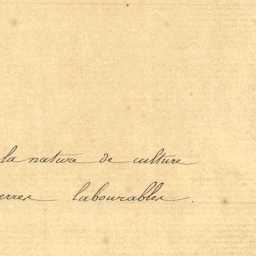 la nature de culture
erres labourables.